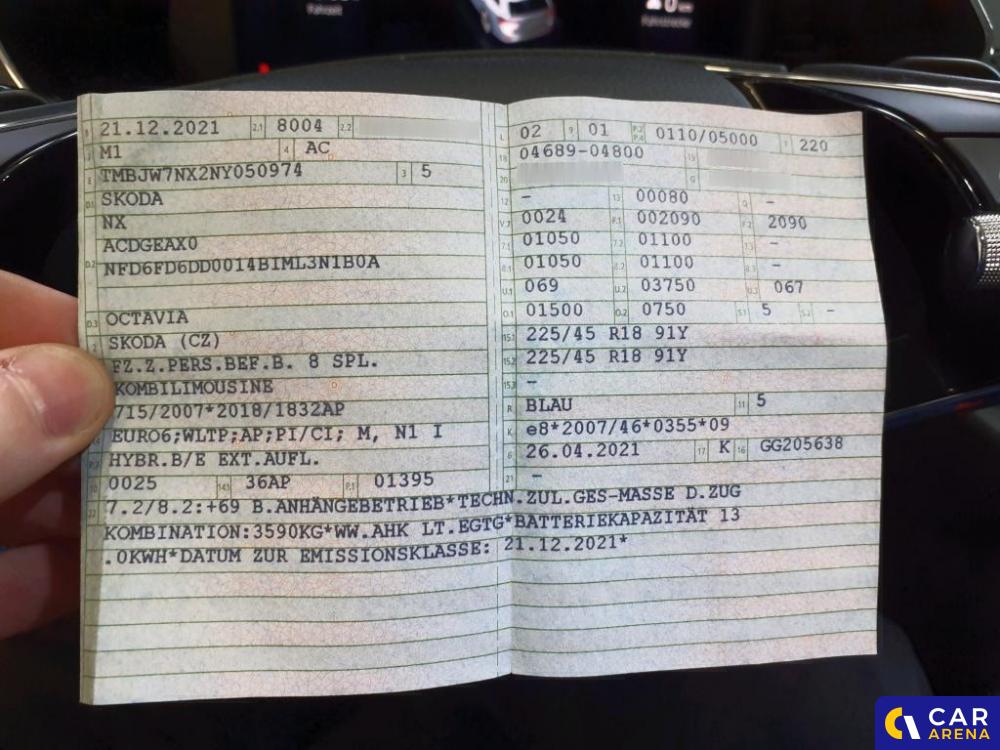 Fahrzeit
0
21.12.2021 2.1 8004 2.2
M1 4 AC
E TMBJW7NX2NY050974 3 5
D.1 SKODA
NX
ACDGEAX0
D.2 NFD6FD6DD0014BIML3N1B0A
D.3 OCTAVIA
2 SKODA (CZ)
FZ.Z.PERS.BEF.B. 8 SPL.
KOMBILIMOUSINE
715/2007*2018/1832AP
EURO6;WLTP;AP;PI/CI; M, N1 I
P.3 HYBR.B/E EXT.AUFL.
10 0025 14.1 36AP P.1 01395
L 02 9 01 P.2 P.4 0110/05000 T 220
18 04689-04800 19
20 G
12 - 13 00080 Q -
V.7 0024 F.1 002090 F.2 2090
7.1 01050 7.2 01100 7.3 -
8.1 01050 8.2 01100 8.3 -
U.1 069 U.2 03750 U.3 067
O.1 01500 O.2 0750 S.1 5 S.2 -
15.1 225/45 R18 91Y
15.2 225/45 R18 91Y
15.3 -
R BLAU 11 5
K e8*2007/46*0355*09
6 26.04.2021 17 K 16 GG205638
21 -
22 7.2/8.2:+69 B.ANHÄNGEBETRIEB*TECHN.ZUL.GES-MASSE D.ZUG
KOMBINATION:3590KG*WW.AHK LT.EGTG*BATTERIEKAPAZITÄT 13
.0KWH*DATUM ZUR EMISSIONSKLASSE: 21.12.2021*
CAR
ARENA